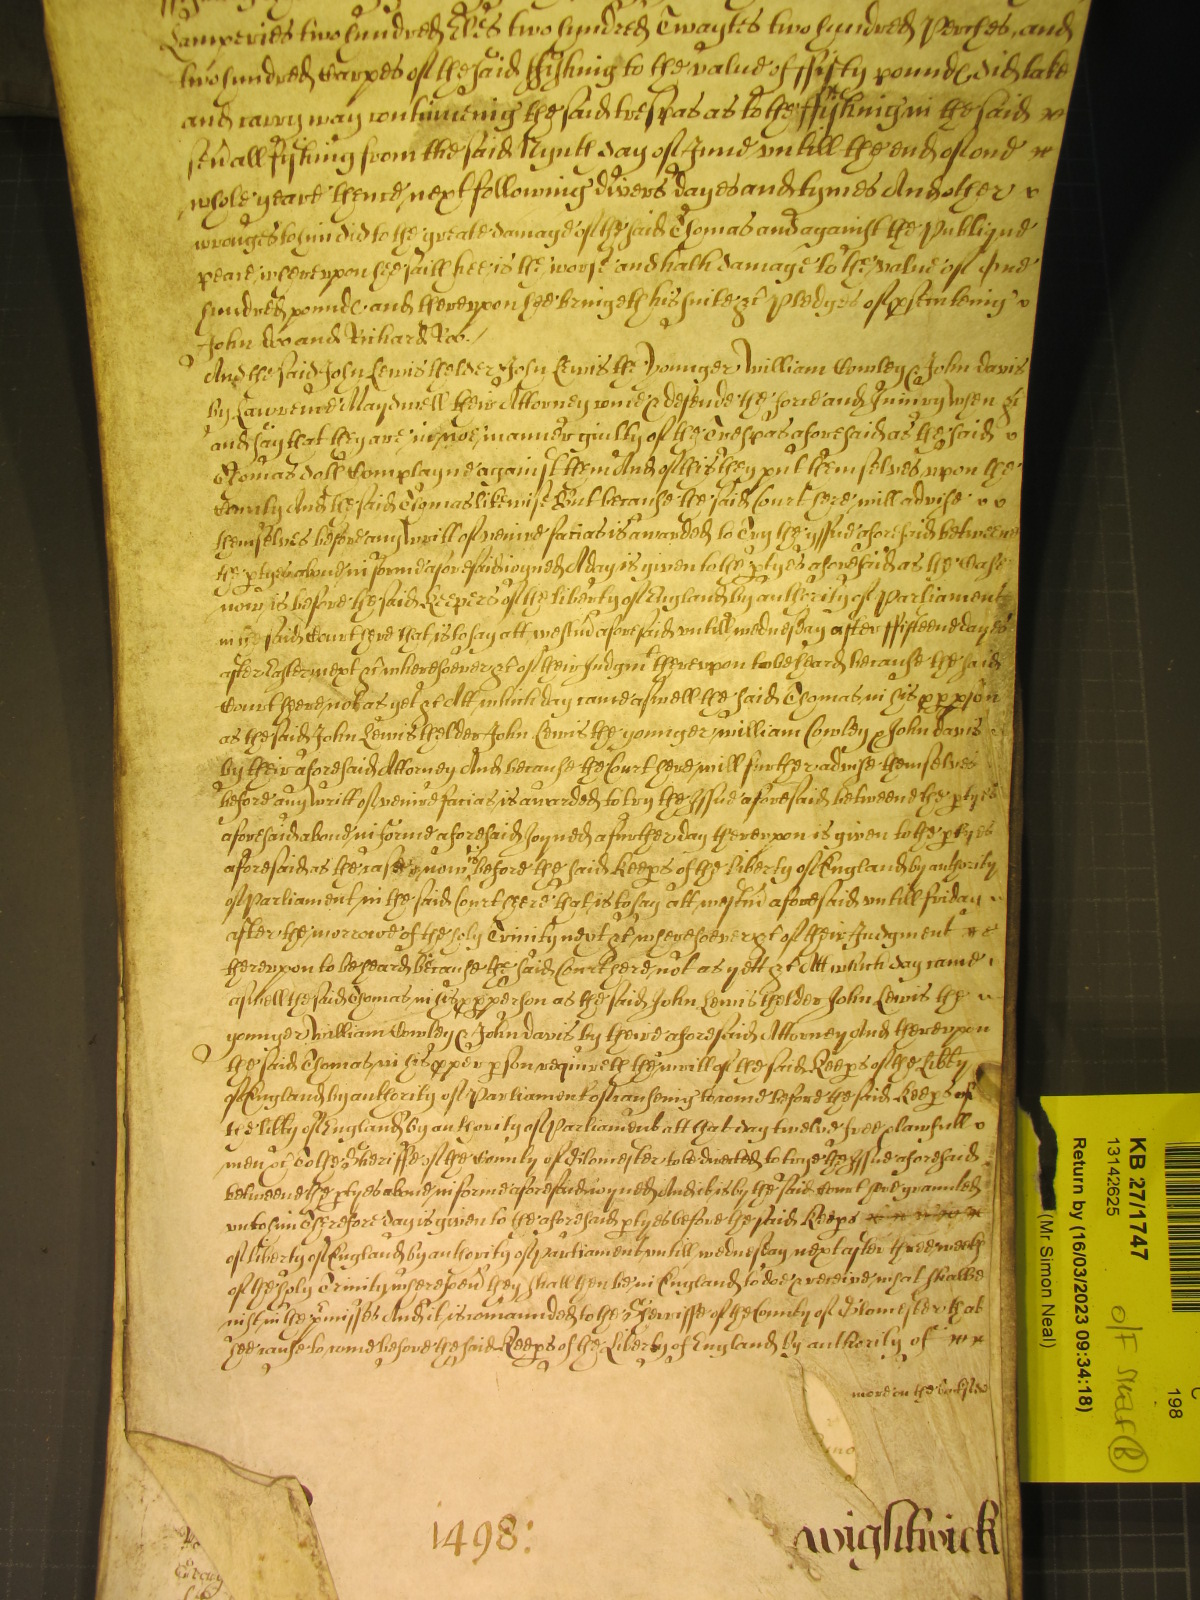 Lamperies two hundred Eles two hundred Twaytes two hundred Perches, and
two hundred Carpes of the said ffishing to the value of ffifty pounds did take
and carry away continueing the said trespas as to the ffishing in the said
seu'all fishing from the said Nynth day of June untill the end of one
whole yeare thence next following divers dayes and tymes And other
wronges to him did to the greate damage of the said Thomas and against the Publique
peace whereupon hee saith hee is the worse and hath damage to the value of One
hundred pounds and thereupon hee bringeth his suite &c Pledges of psecuteing
John Doo and Richard Roo./
And the said John Lewis thelder John Lewis the Younger William Cowley & John Davis
by Lawrence Maydwell their Attorney come & defende the force and Iniury when &c
and say that they are in noe manner guilty of the Trespas aforesaid as the said
Thomas doth Complayne against them And of this they put themselves upon the
County And the said Thomas likewise But because the said Court here will advise
themselves before any writt of venire facias is awarded to Try the yssue aforesaid betweene
the ptyes above in forme aforesaid ioyned A day is given to the ptyes aforesaid as the Case
now is before the said Keepers of the liberty of England by authority of Parliament
in the said Court here that is to say att westm' aforesaid untill wednesday after ffifteene dayes
after Easter next &c wheresoever &c of their Judgmt thereupon to be heard because the said
Court here not as yet &c Att which day came aswell the said Thomas in his pper pson
as the said John Lewis thelder John Lewis the younger william Cowley & John Davis
by their aforesaid Attorney And because the Court here will further advise themselves
before any writt of venire facias is awarded to try the Issue aforesaid betweene the ptyes
aforesaid above in forme aforesaid Joyned a further day thereupon is given to the ptyes
aforesaid as the case now is before the said Keeps of the liberty of England by authority
of Parliament in the said Court here that is to say att westm' aforesaid untill friday
after the morrowe of the holy Trinity next &c wheresoever &c of their Judgment
thereupon to be heard because the said Court here not as yett &c Att which day came
aswell the said Thomas in his pper person as the said John Lewis thelder John Lewis the
younger William Cowley & John Davis by theire aforesaid Attorney And thereupon
the said Thomas in his pper pson requireth the writt of the said Keeps of the Libty
of England by authority of Parliament of causeing to come before the said Keeps of
the libty of England by authority of Parliament att that day twelve free & lawfull
men &c to the Sheriffe of the County of Glouccester to be directed to trye the Issue aforesaid
betweene the ptyes above in forme aforesaid ioyned And it is by the said Court here graunted
unto him Therefore day is given to the aforesaid ptyes before the said Keeps
of liberty of England by authority of Parliament untill wednesday next after three weeks
of the holy Trinity wheresoeu' they shall then be in England to doe & receive what shalbe
iust in the pmisses And it is comaunded to the Sheriffe of the County of Gloucester that
hee cause to come before the said Keeps of the Liberty of England by authority of
more on the backside
1498:
wightwick
KB 27/1747
13142625
Return by (16/03/2023 09:34:18)
(Mr Simon Neal)
C
198